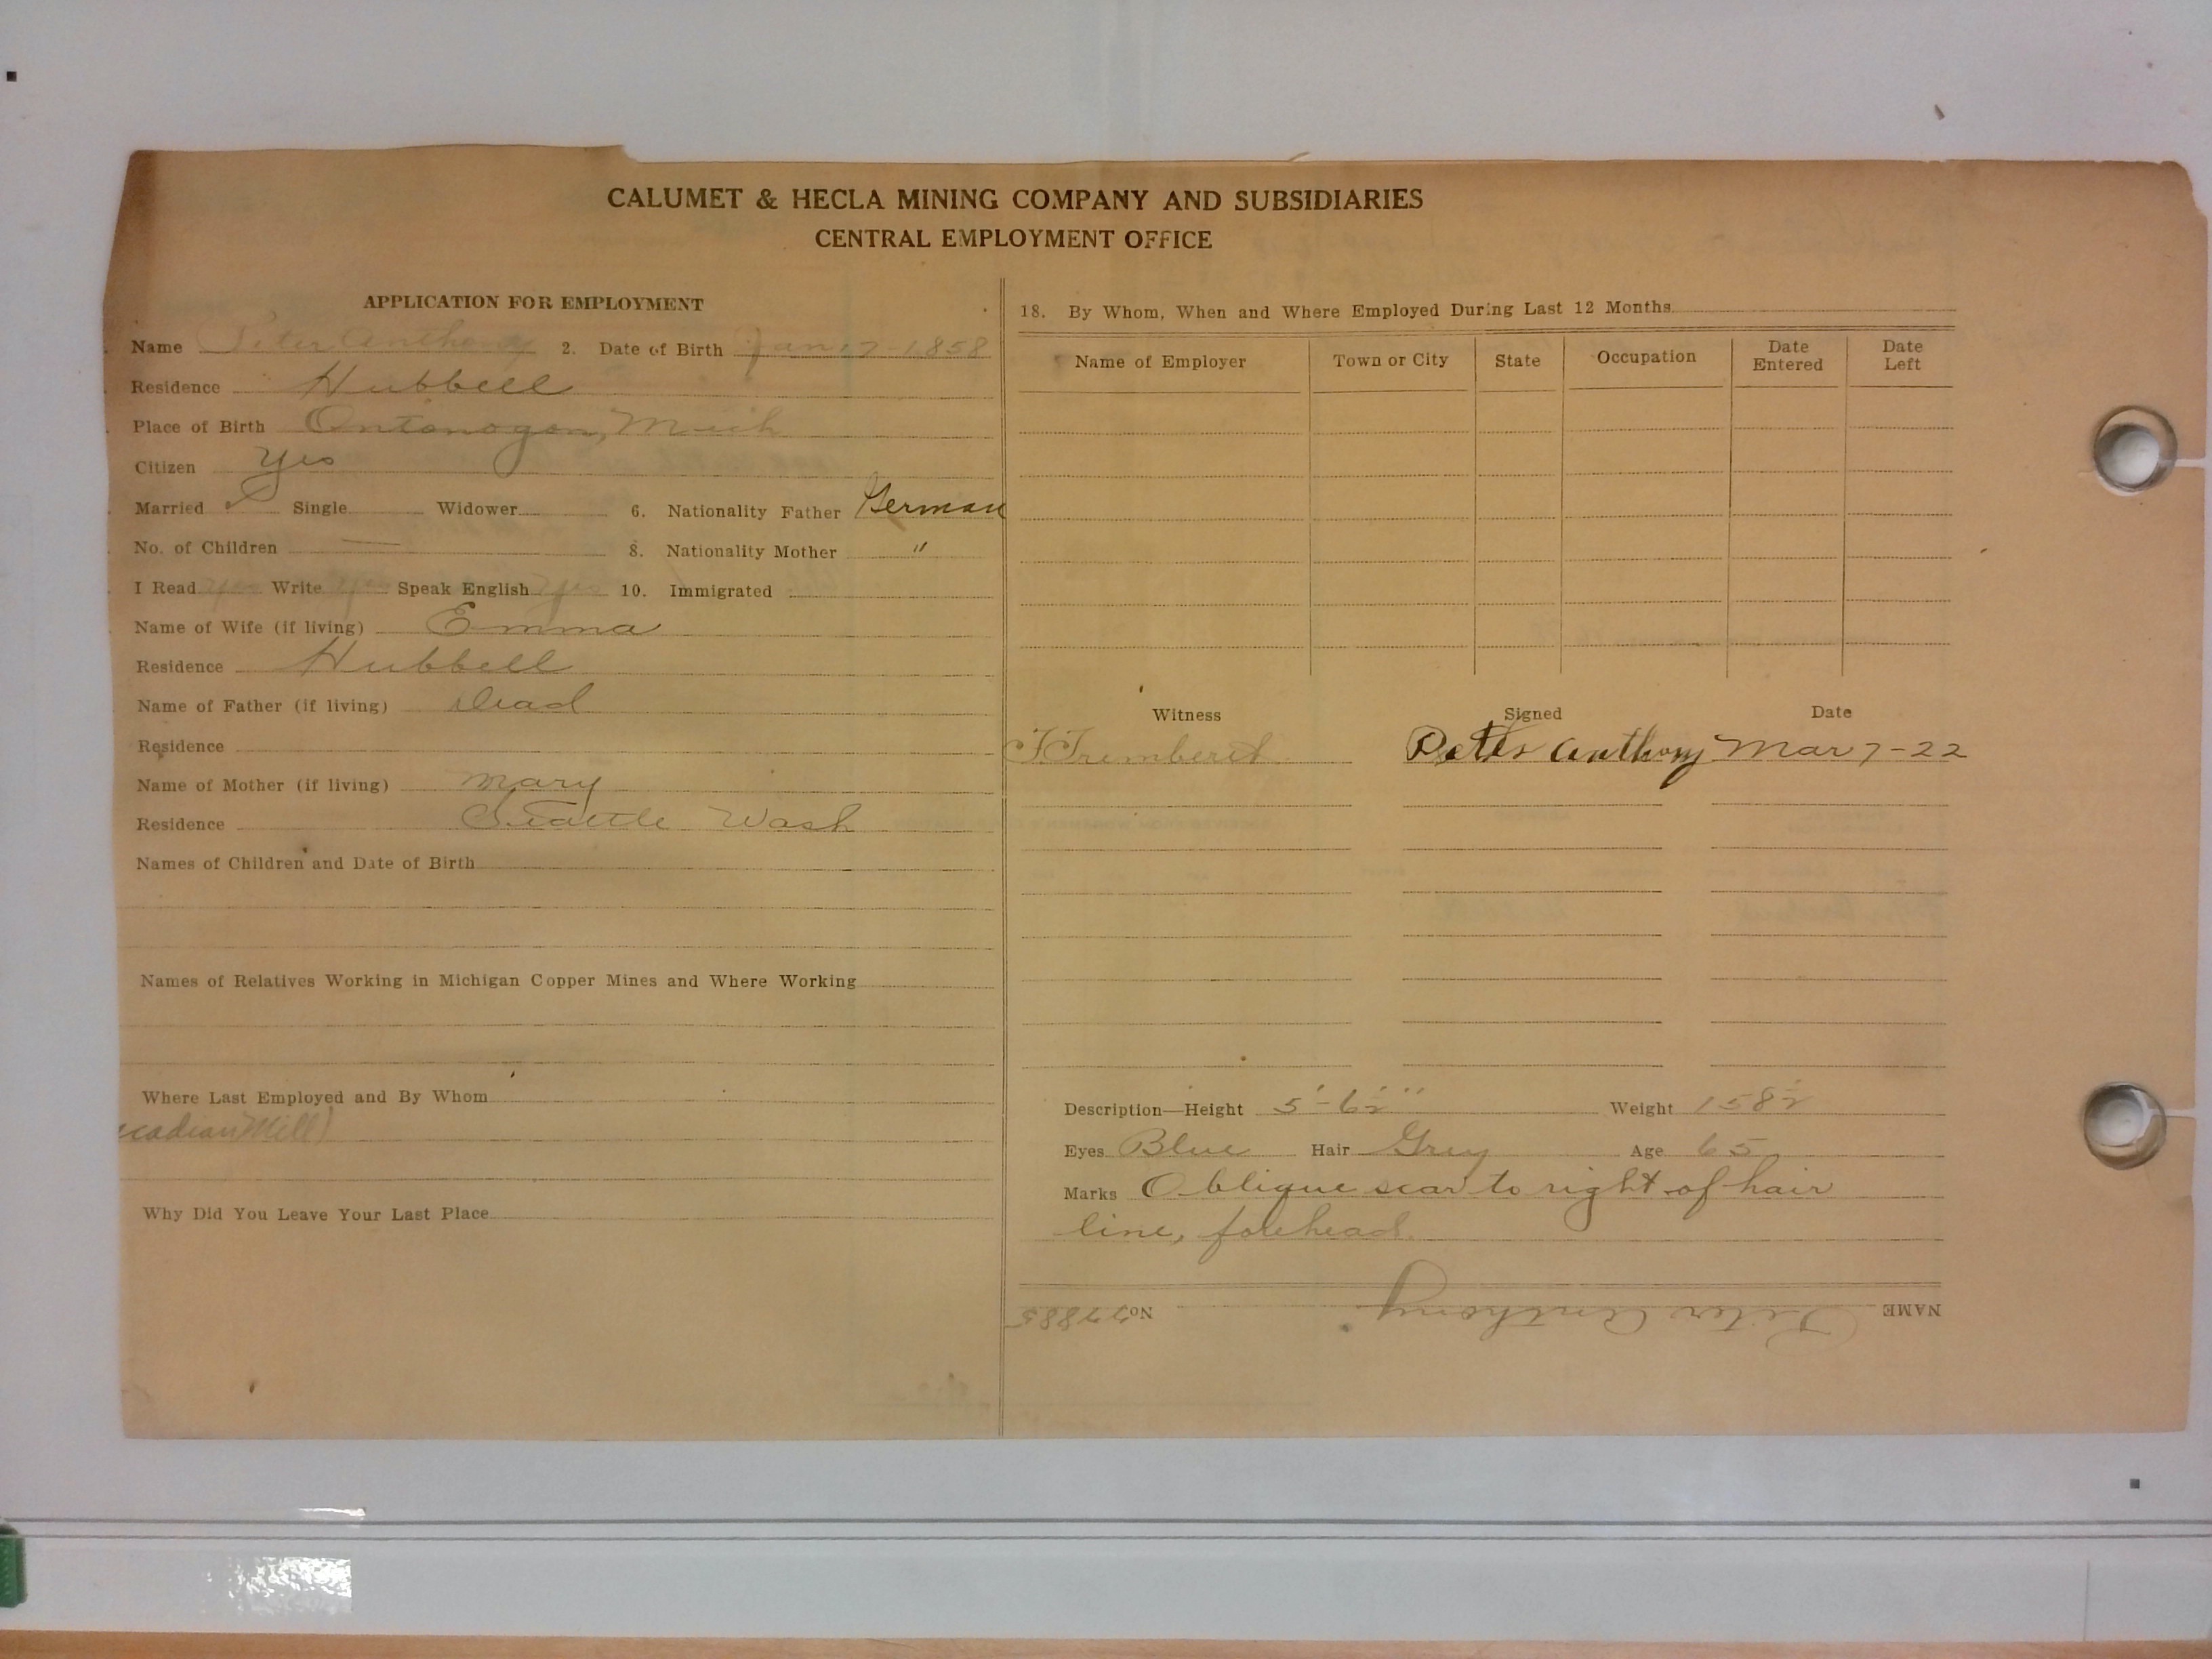 CALUMET & HECLA MINING COMPANY AND SUBSIDIARIES
CENTRAL EMPLOYMENT OFFICE
APPLICATION FOR EMPLOYMENT
Name Peter Anthony 2. Date of Birth Jan 17-1858
Residence Hubbell
Place of Birth Ontonogon, Mich
Citizen Yes
Married ✓ Single Widower 6. Nationality Father German
No. of Children — 8. Nationality Mother "
I Read yes Write yes Speak English yes 10. Immigrated
Name of Wife (if living) Emma
Residence Hubbell
Name of Father (if living) Dead
Residence
Name of Mother (if living) Mary
Residence Seattle Wash
Names of Children and Date of Birth
Names of Relatives Working in Michigan Copper Mines and Where Working
Where Last Employed and By Whom
cadian Mill)
Why Did You Leave Your Last Place
18. By Whom, When and Where Employed During Last 12 Months
Name of Employer Town or City State Occupation Date Entered Date Left
Witness Signed Date
Peter Anthony Mar 7-22
Description—Height 5'-6½" Weight 158½
Eyes Blue Hair Grey Age 65
Marks Oblique scar to right of hair
line, forehead
NAME Peter Anthony No. 77885